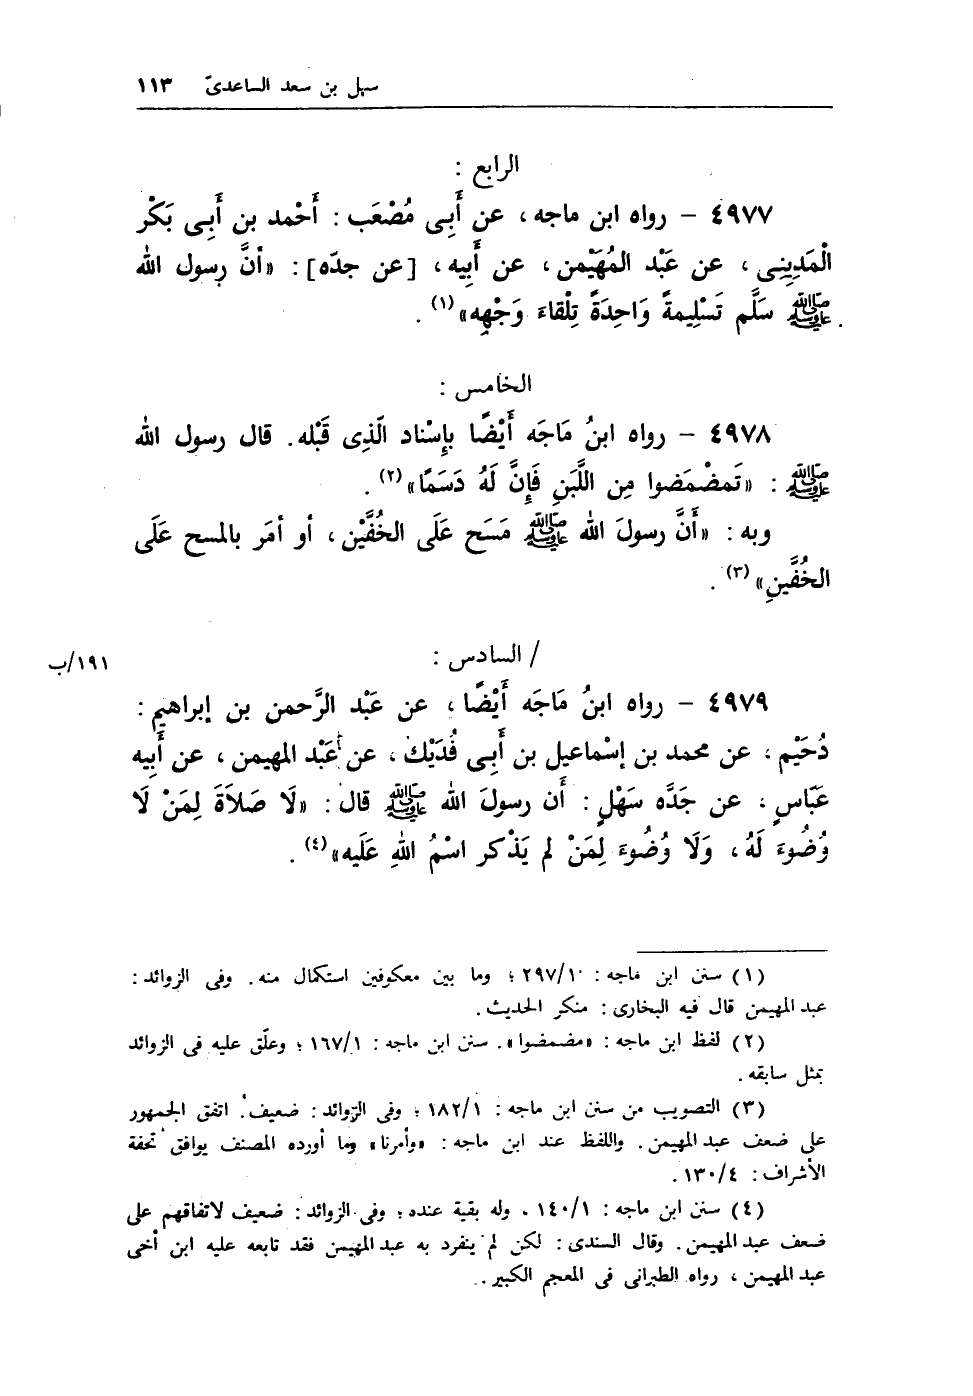 سهل بن سعد الساعدىّ ١١٣
الرابع :
٤٩٧٧ – رواه ابن ماجه ، عن أَبِى مُصْعَب : أَحْمد بن أَبِى بَكْر
الْمَدِينِى ، عن عَبْد المُهَيْمن ، عن أَبِيه ، [عن جدّه] : «أنَّ رسول الله
ﷺ سَلَّم تَسْلِيمةً وَاحِدَةً تِلْقاءَ وَجْهِه»(١) .
الخامس :
٤٩٧٨ – رواه ابنُ مَاجَه أَيْضًا بإِسْناد الّذِى قَبْله. قال رسول الله
ﷺ : «تَمضْمَضوا مِن اللَّبَنِ فَإِنَّ لَهُ دَسَمًا»(٢) .
وبه : «أَنَّ رسولَ الله ﷺ مَسَح عَلَى الخُفَّيْن ، أو أمَر بالمسح عَلَى
الخُفَّينِ»(٣) .
/ السادس :
١٩١/ب
٤٩٧٩ – رواه ابنُ مَاجَه أَيْضًا ، عن عَبْد الرَّحمن بن إبراهيم :
دُحَيْم ، عن محمد بن إسْماعيل بن أَبِى فُدَيْك ، عن عَبْد المهيمن ، عن أَبِيه
عَبّاسٍ ، عن جَدَّه سَهْلٍ : أَن رسولَ الله ﷺ قال : «لَا صَلاَةَ لِمَنْ لَا
وُضُوءَ لَهُ ، وَلَا وُضُوءَ لِمَنْ لم يَذْكر اسْمُ اللهِ عَلَيه»(٤) .
(١) سنن ابن ماجه : ٢٩٧/١٠ ؛ وما بين معكوفين استكمال منه . وفى الزوائد :
عبد المهيمن قال فيه البخارى : منكر الحديث .
(٢) لفظ ابن ماجه : «مضمضوا» . سنن ابن ماجه : ١٦٧/١ ؛ وعلّق عليه فى الزوائد
بمثل سابقه .
(٣) التصويب من سنن ابن ماجه : ١٨٢/١ ؛ وفى الزوائد : ضعيف . اتفق الجمهور
على ضعف عبد المهيمن . واللفظ عند ابن ماجه : «وأمرنا» وما أورده المصنف يوافق تحفة
الأشراف : ١٣٠/٤ .
(٤) سنن ابن ماجه : ١٤٠/١ ، وله بقية عنده ؛ وفى الزوائد : ضعيف لاتفاقهم على
ضعف عبد المهيمن . وقال السندى : لكن لم ينفرد به عبد المهيمن فقد تابعه عليه ابن أخى
عبد المهيمن ، رواه الطبرانى فى المعجم الكبير ..